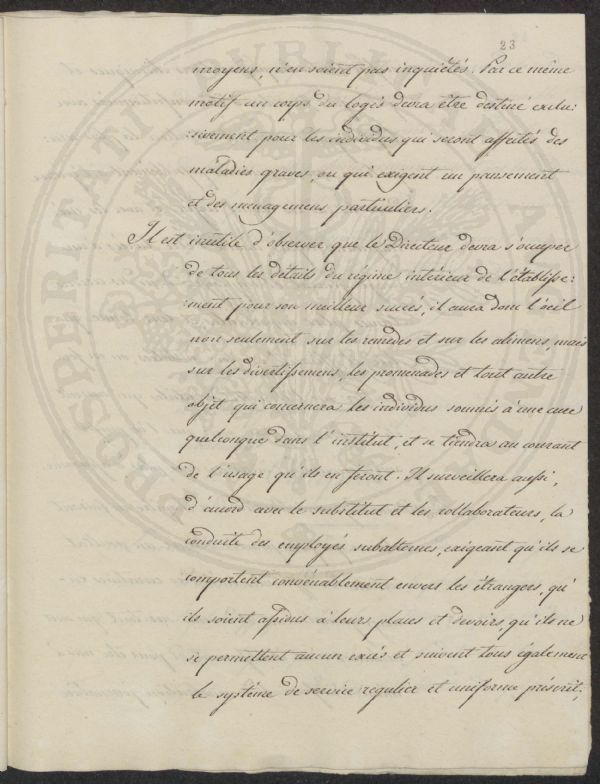 23
moyens, n'en soient pas inquiétés. Par ce même
motif un corps du logis devra être destiné exclu:
:sivement pour les individus qui seront affectés des
maladies graves, ou qui exigent un pansement
et des menagemens particuliers.
Il est inutile d'observer que le Directeur devra s'occuper
de tous les détails du regime intérieur de l'établisse:
:ment pour son meilleur succés, il aura donc l'oeil
non seulement sur les remedes et sur les alimens, mais
sur les divertissemens, les promenades et tout autre
objet qui concernera les individus soumis à une cure
quelconque dans l'institut, et se tiendra au courant
de l'usage qu'ils en feront. Il surveillera aussi,
d'accord avec le substitut et les collaborateurs, la
conduite des employés subalternes, exigeant qu'ils se
comportent convénablement envers les étrangers, qu'
ils soient assidus à leurs places et devoirs, qu'ils ne
se permettent aucun excés et suivent tous également
le système de service regulier et uniforme préscrit;
PROSPERITATI PUBLICAE